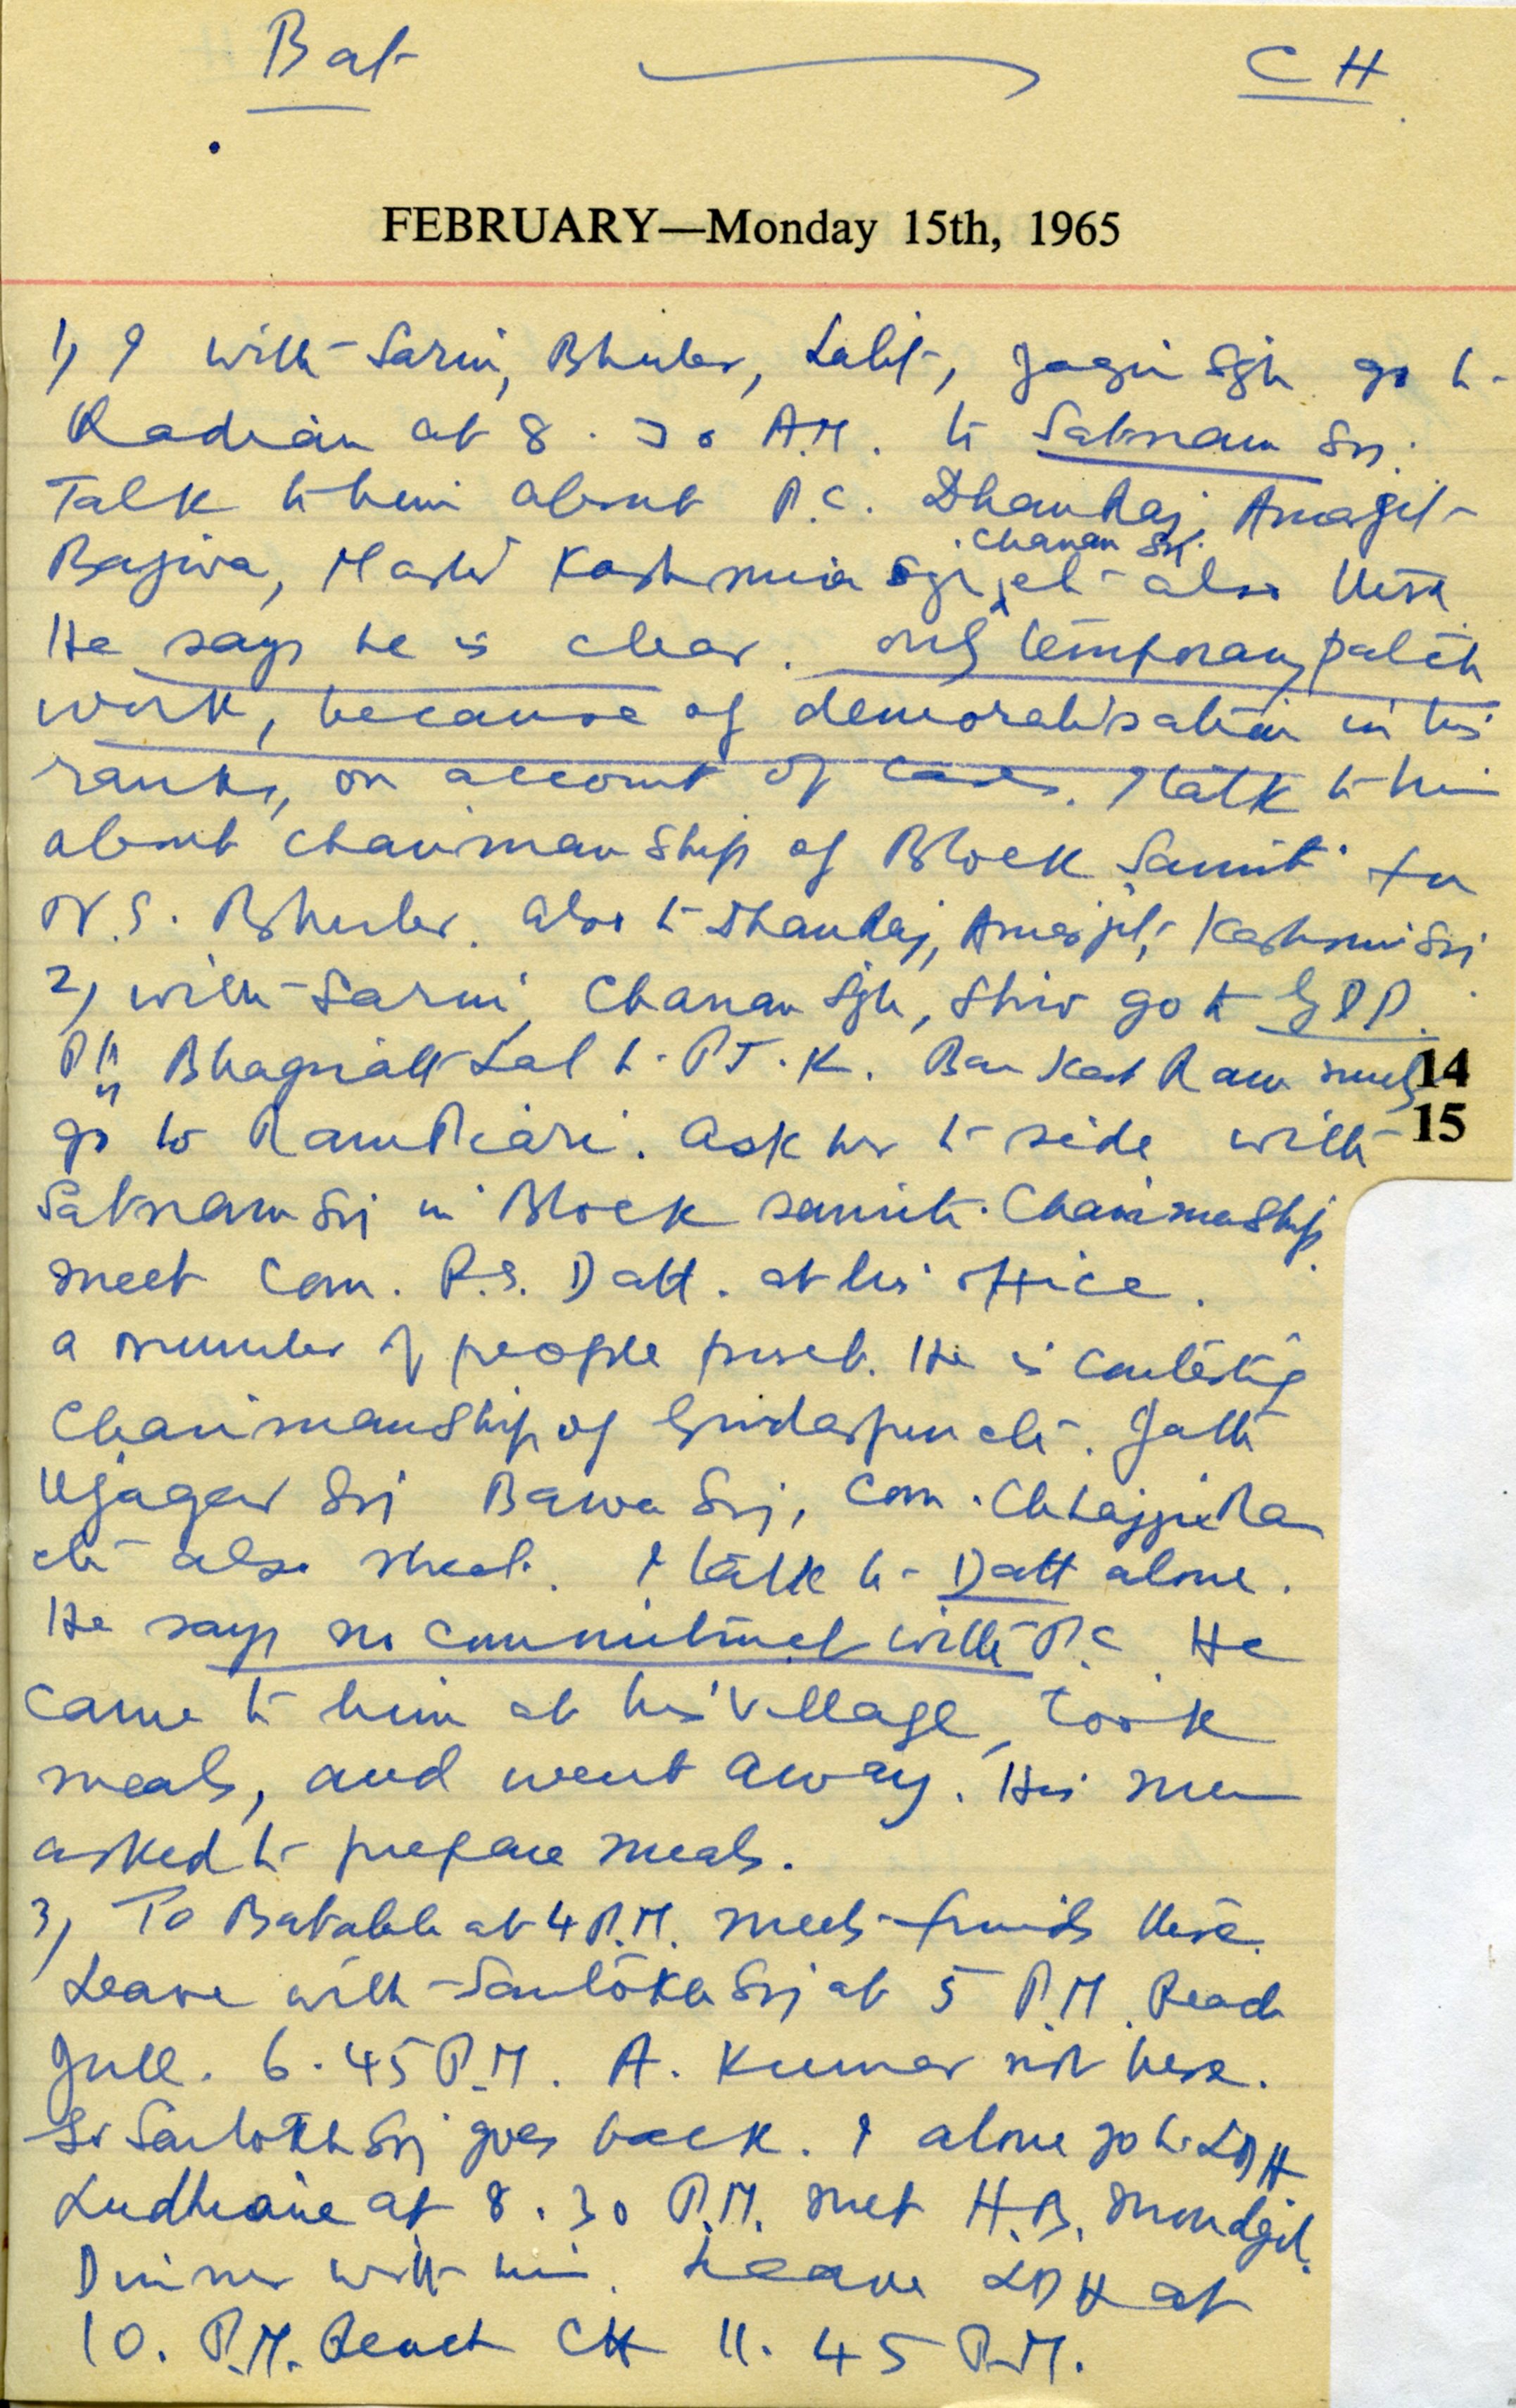 Bat CH
FEBRUARY—Monday 15th, 1965
1) I with Sarin, Bhuler, Lalit, Jagir Sgh go to
Kadian at 8.30 A.M. to Satnam Sri.
Talk to him about P.C. Dhanraj, Amarjit
Chanan Sgh.
Bajwa, Master Kashmira Sgh, etc also there
He says he is clear. only temporary patch
work, because of demoralisation in his
ranks, on account of cases. I talk to him
about chairmanship of Block Samiti for
N.S. Bhuler. also to Dhanraj, Amarjit, Kashmir Sri
2) with Sarin, Chanan Sgh, Shiv go to GDP.
Bhagriath Lal to PT.K. Ram
14
15
go to Ram Piari. Ask her to side with
Satnam Sri in Block samiti Chairmaship.
meet Com. R.S. Datt. at his office.
a number of people prsent. He is contesting
Chairmanship of Gurdaspur etc. Jath
Ujagar Sri Bawa Sri, Com. Chhajju Ram
etc also meet. I talk to Datt alone.
He says no commitment with P.C. He
came to him at his village, took
meals, and went away. His men
asked to prepare meals.
3) To Batala at 4 P.M. meet friends there.
Leave with Santokh Sri at 5 P.M. Reach
Jull. 6.45 P.M. A. Kumar not here.
So Santokh Sri goes back. I alone go to LDH
Ludhiana at 8.30 P.M. met H.B. Moudgil.
Dinner with him. Leave LDH at
10. P.M. Reach CH 11.45 P.M.